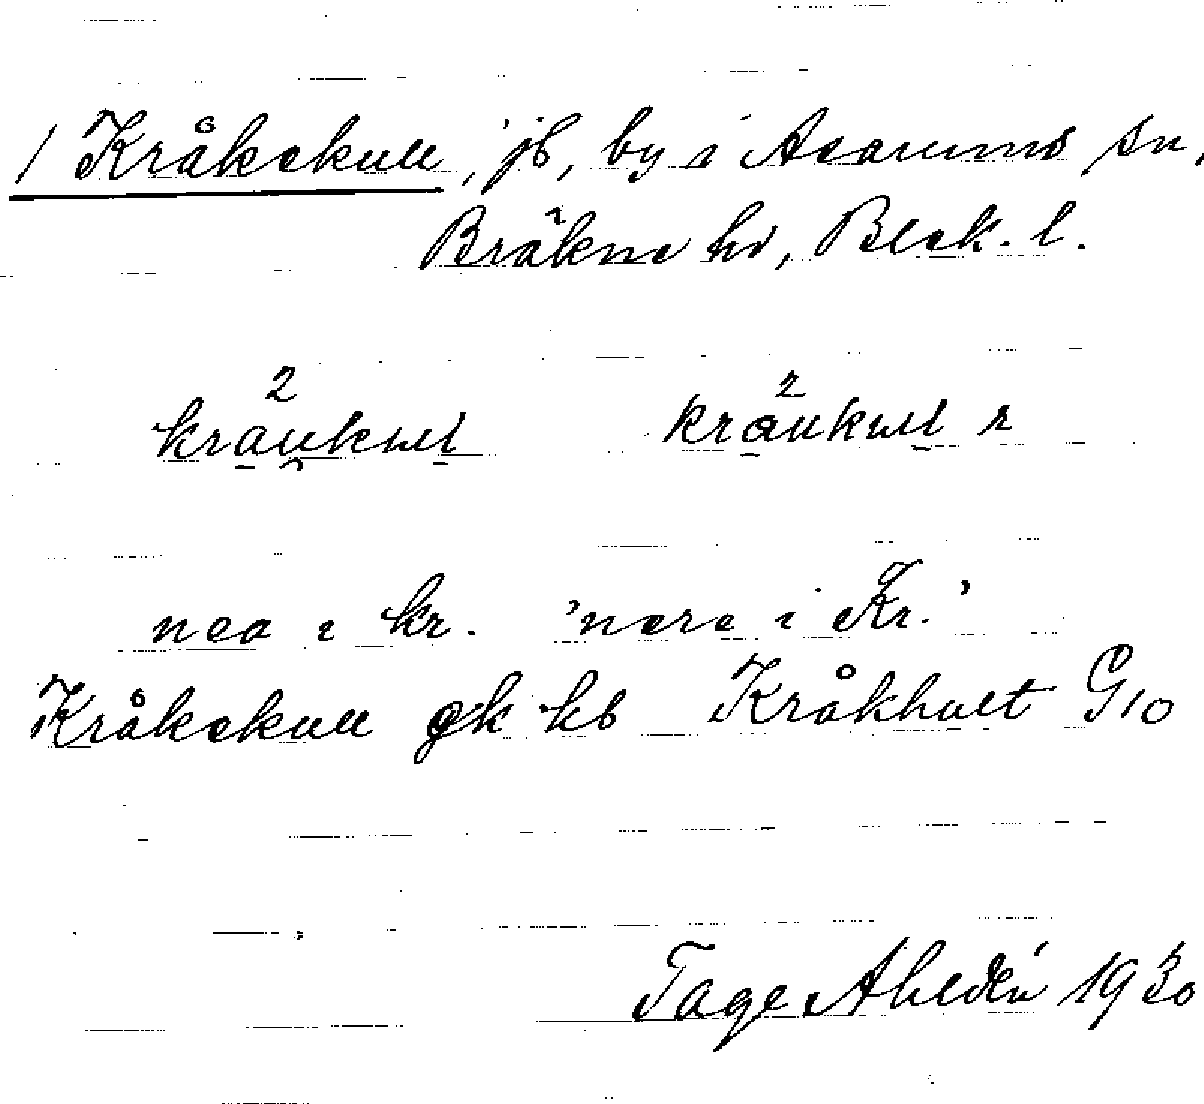 1 Kråkekull, jb, by i Asarums sn,
Bräkne hd, Blek. l.
2 2
kraukull kraukull r
nea i kr. 'nere i Kr.'
Kråkekull gk kb Kråkhult G10
Tage Ahldén 1930